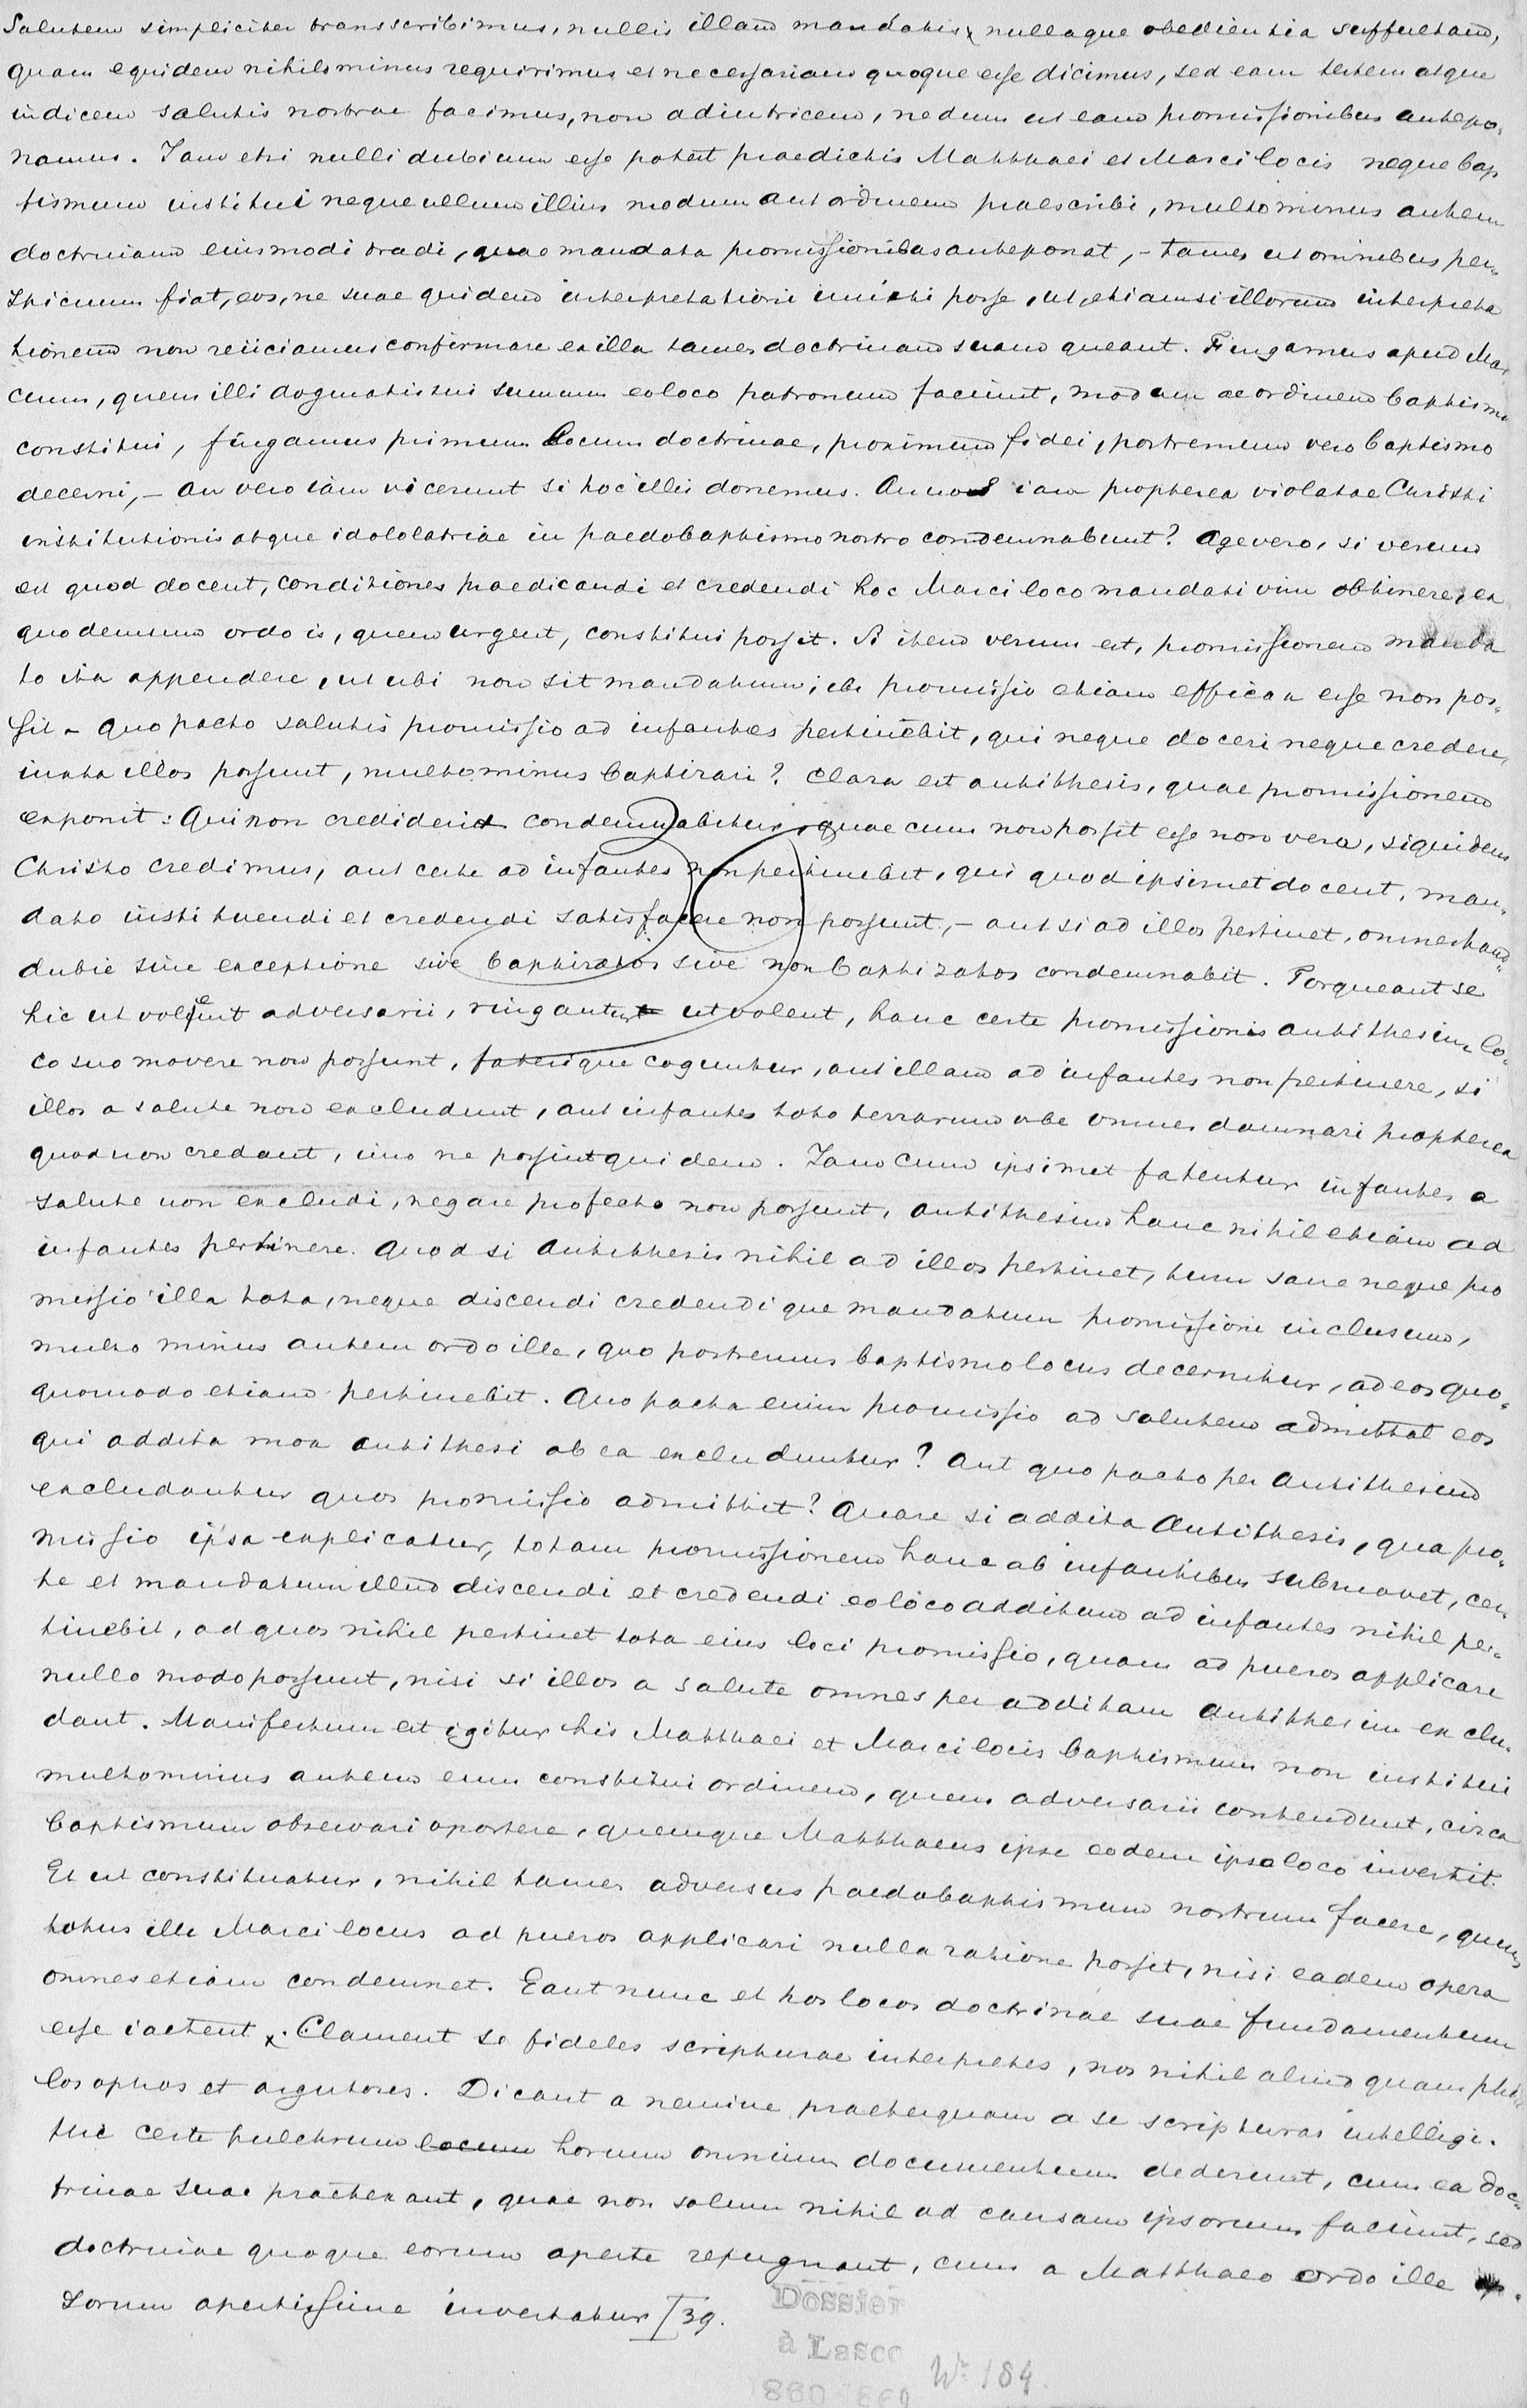 Salutem simpliciter transscribimus, nullis illam mandatis, nullaque obedientia suffultam,
quam equidem nihilominus requirimus et necessariam quoque esse dicimus, sed eam testem atque
indicem salutis nostrae facimus, non adiutricem, nedum ut eam promissionibus antepo-
namus. Iam etsi nulli dubium esse potest praedictis Matthaei et Marci locis neque bap
tismum institui neque ullum illius modum aut ordinem praescribi, multo minus autem
doctrinam eiusmodi tradi, quae mandata promissionibus anteponat, - tamen ut omnibus per-
spicuum fiat, eos, ne suae quidem interpretationi inniti posse, ut, etiamsi illorum interpreta
tionem non reiiciamus confirmare ex illa tamen doctrinam suam queant. Fingamus apud Mar
cum, quem illi dogmatis sui summum eo loco patronum faciunt, modum ac ordinem baptismo
constitui, fingamus primum locum doctrinae, proximum fidei, postremum vero baptismo
decerni, - an vero iam vicerunt si hoc illis donemus. An nos iam propterea violatae Christi
institutionis atque idololatriae in paedobaptismo nostro condemnabunt? Age vero, si verum
est quod docent, conditiones praedicandi et credendi hoc Marci loco mandati vim obtinere, ex
quo demum ordo is, quem urgent, constitui posset. Si item verum est, promissionem manda
to ita appendere, ut ubi non sit mandatum, ibi promissio etiam efficax esse non pos-
sit - quo pacto salutis promissio ad infantes pertinebit, qui neque doceri neque credere,
iuxta illos possunt, multo minus baptizari? Clara est antithesis, quae promissionem
exponit: Qui non crediderit condemnabitur, quae cum non possit esse non vera, siquidem
Christo credimus, aut certe ad infantes non pertinebit, qui quod ipsimet docent, man-
dato instituendi et credendi satisfacere non possunt, - aut si ad illos pertinet, omnes haud
dubie sine exceptione sive baptizatos sive non baptizatos condemnabit. Torqueant se
hic ut volent adversarii, ringantur ut volent, hanc certe promissionis antithesim lo-
co suo movere non possunt, faterique coguntur, aut illam ad infantes non pertinere, si
illos a salute non excludunt, aut infantes toto terrarum orbe omnes damnari propterea
quod non credant, imo ne possint quidem. Iam cum ipsimet fatentur infantes a
salute non excludi, negare profecto non possunt, antithesim hanc nihil etiam ad
infantes pertinere. Quod si antithesis nihil ad illos pertinet, tum sane neque pro
missio illa tota, neque discendi credendique mandatum promissioni inclusum,
multo minus autem ordo ille, quo postremus baptismo locus decernitur, ad eos quo-
quomodo etiam pertinebit. Quo pacto enim promissio ad salutem admittat eos
qui addita mox antithesi ab ea excluduntur? Aut quo pacto per antithesim
excludantur quos promissio admittit? Quare si addita antithesis, qua pro-
missio ipsa explicatur, totam promissionem hanc ab infantibus submovet, cer-
te et mandatum illud discendi et credendi eo loco additum ad infantes nihil per-
tinebit, ad quos nihil pertinet tota eius loci promissio, quam ad pueros applicare
nullo modo possunt, nisi si illos a salute omnes per additam antithesim exclu-
dant. Manifestum est igitur his Matthaei et Marci locis baptismum non institui
multo minus autem eum constitui ordinem, quem adversarii contendunt, circa
baptismum observari oportere, quemque Matthaeus ipse eodem ipso loco invertit.
Et ut constituatur, nihil tamen adversus paedobaptismum nostrum facere, quum
totus ille Marci locus ad pueros applicari nulla ratione posset, nisi eadem opera
omnes etiam condemnet. Eant nunc et hos locos doctrinae suae fundamentum
esse iactent. Clament se fideles scripturae interpretes, nos nihil aliud quam phi
losophos et argutores. Dicant a nemine praeterquam a se scripturas intelligi.
Hic certe pulchrum locum horum omnium documentum dederunt, cum ea doc-
trinae suae praetexant, quae non solum nihil ad causam ipsorum faciunt, sed
doctrinae quoque eorum aperte repugnant, cum a Matthaeo ordo ille ip-
sorum apertissime invertatur 39.
Dossier
à Lasco
1860 1861
No 184.